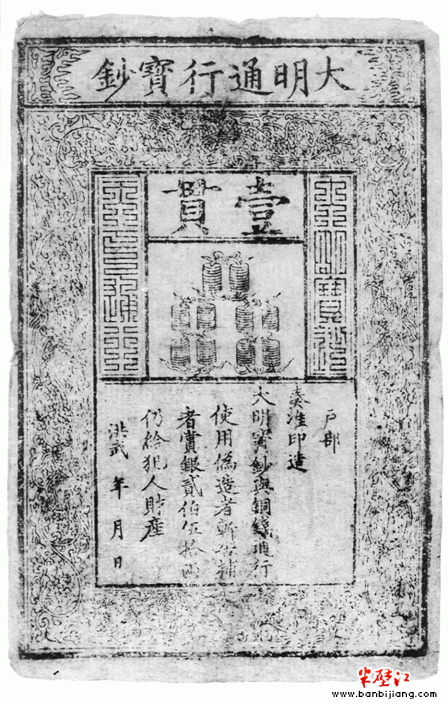 大明通行寶鈔
壹貫
戶部
奏准印造
大明寶鈔與銅錢通行
使用偽造者斬告捕
者賞銀貳伯伍拾兩
仍給犯人財產
洪武 年 月 日
半壁江
www.banbijiang.com